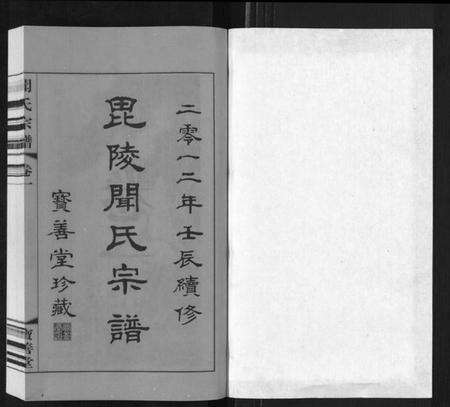 二零一二年壬辰續修
毘陵聞氏宗譜
寳善堂珍藏
聞氏宗譜 卷一
寳善堂